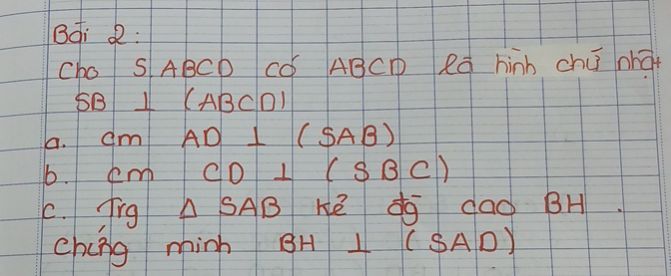 Bài 2:
Cho SABCD có ABCD là hình chữ nhật
SB ⊥ (ABCD)
a. cm AD ⊥ (SAB)
b. cm CD ⊥ (SBC)
c. Trg Δ SAB kẻ đg cao BH.
Chứng minh BH ⊥ (SAD)